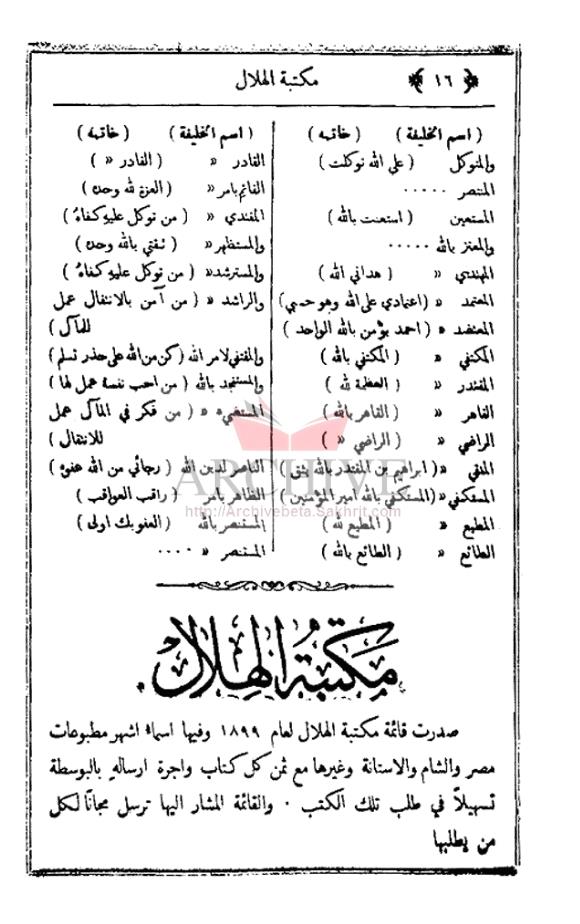 ﴿ ١٦ ﴾ مكتبة الهلال
( اسم الخليفة ) ( خاتمه )
والمتوكل ( على الله توكلت )
المنتصر ٠٠٠٠٠
المستعين ( استعنت بالله )
والمعتز بالله ٠٠٠٠٠
المهتدي » ( هداني الله )
المعتمد » ( اعتمادي على الله وهو حسبي )
المعتضد » ( احمد يؤمن بالله الواحد )
المكتفي » ( المكتفي بالله )
المقتدر » ( العظمة لله )
القاهر » ( القاهر بالله )
الراضي » ( الراضي » )
المتقي » ( ابراهيم بن المقتدر بالله يثق )
المستكفي » ( المستكفي بالله امير المؤمنين )
المطيع » ( المطيع لله )
الطائع » ( الطائع بالله )
( اسم الخليفة ) ( خاتمه )
القادر » ( القادر » )
القائم بامر » ( العزة لله وحده )
المقتدي » ( من توكل عليه كفاه )
والمستظهر » ( ثقتي بالله وحده )
والمسترشد » ( من توكل عليه كفاه )
والراشد » ( من آمن بالانتقال عمل
للمآل )
والمقتفي لامر الله ( كن من الله على حذر تسلم )
والمستنجد بالله ( من احب نفسه عمل لها )
المستضيء » ( من فكر في المآل عمل
للانتقال )
الناصر لدين الله ( رجائي من الله عفوه )
الظاهر بامر ( راقب العواقب )
المستنصر بالله ( العفو بك اولى )
المستنصر » ٠٠٠٠
ARCHIVE
http://Archivebeta.Sakhrit.com
مكتبة الهلال
صدرت قائمة مكتبة الهلال لعام ١٨٩٩ وفيها اسماء اشهر مطبوعات
مصر والشام والاستانة وغيرها مع ثمن كل كتاب واجرة ارساله بالبوسطة
تسهيلاً في طلب تلك الكتب ٠ والقائمة المشار اليها ترسل مجاناً لكل
من يطلبها